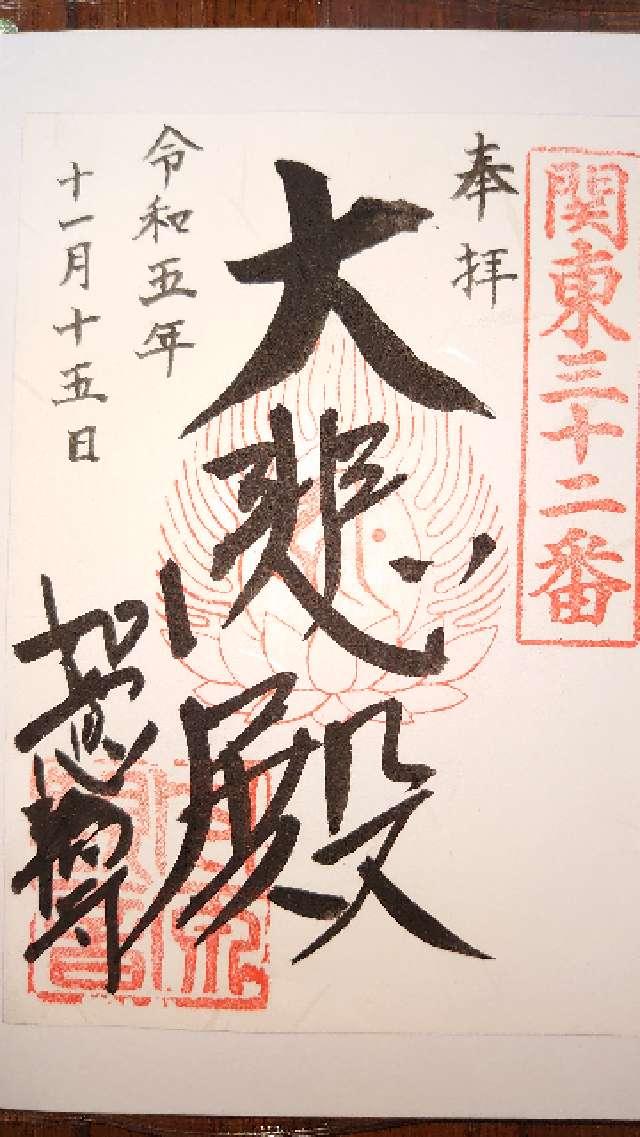 関東三十二番
奉拝
大悲殿
令和五年
十一月十五日